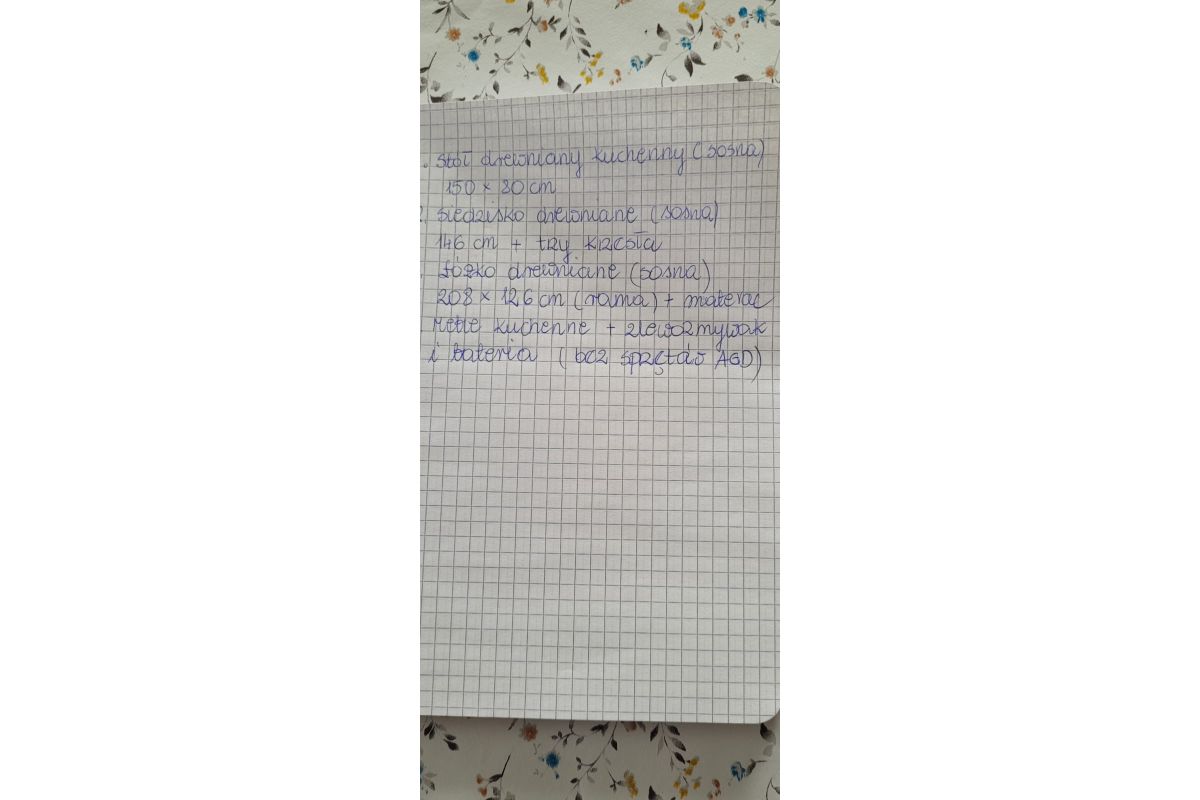 . stół drewniany kuchenny (sosna)
150 x 80 cm
2. siedzisko drewniane (sosna)
146 cm + trzy krzesła
łóżko drewniane (sosna)
208 x 126 cm (rama) + materac
meble kuchenne + zlewozmywak
i bateria (bez sprzętów AGD)